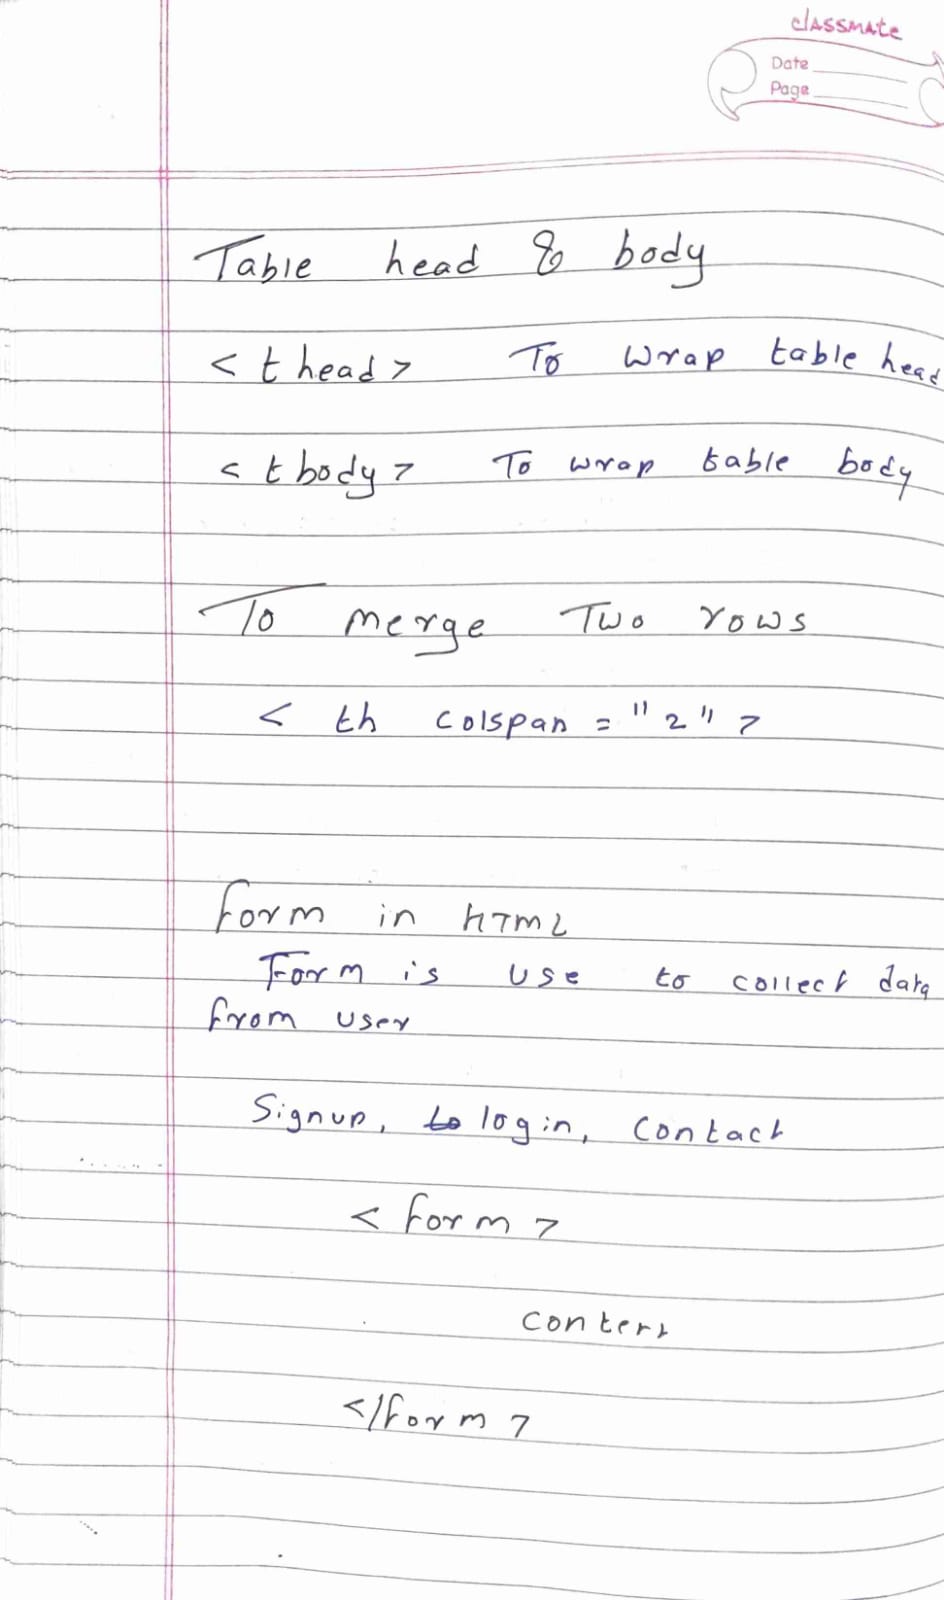 classmate
Date
Page
Table head & body
<thead> To wrap table head
<tbody> To wrap table body
To merge Two rows
<th colspan="2">
Form in HTML
Form is use to collect data
from user
Signup, to login, Contact
<form>
Content
</form>